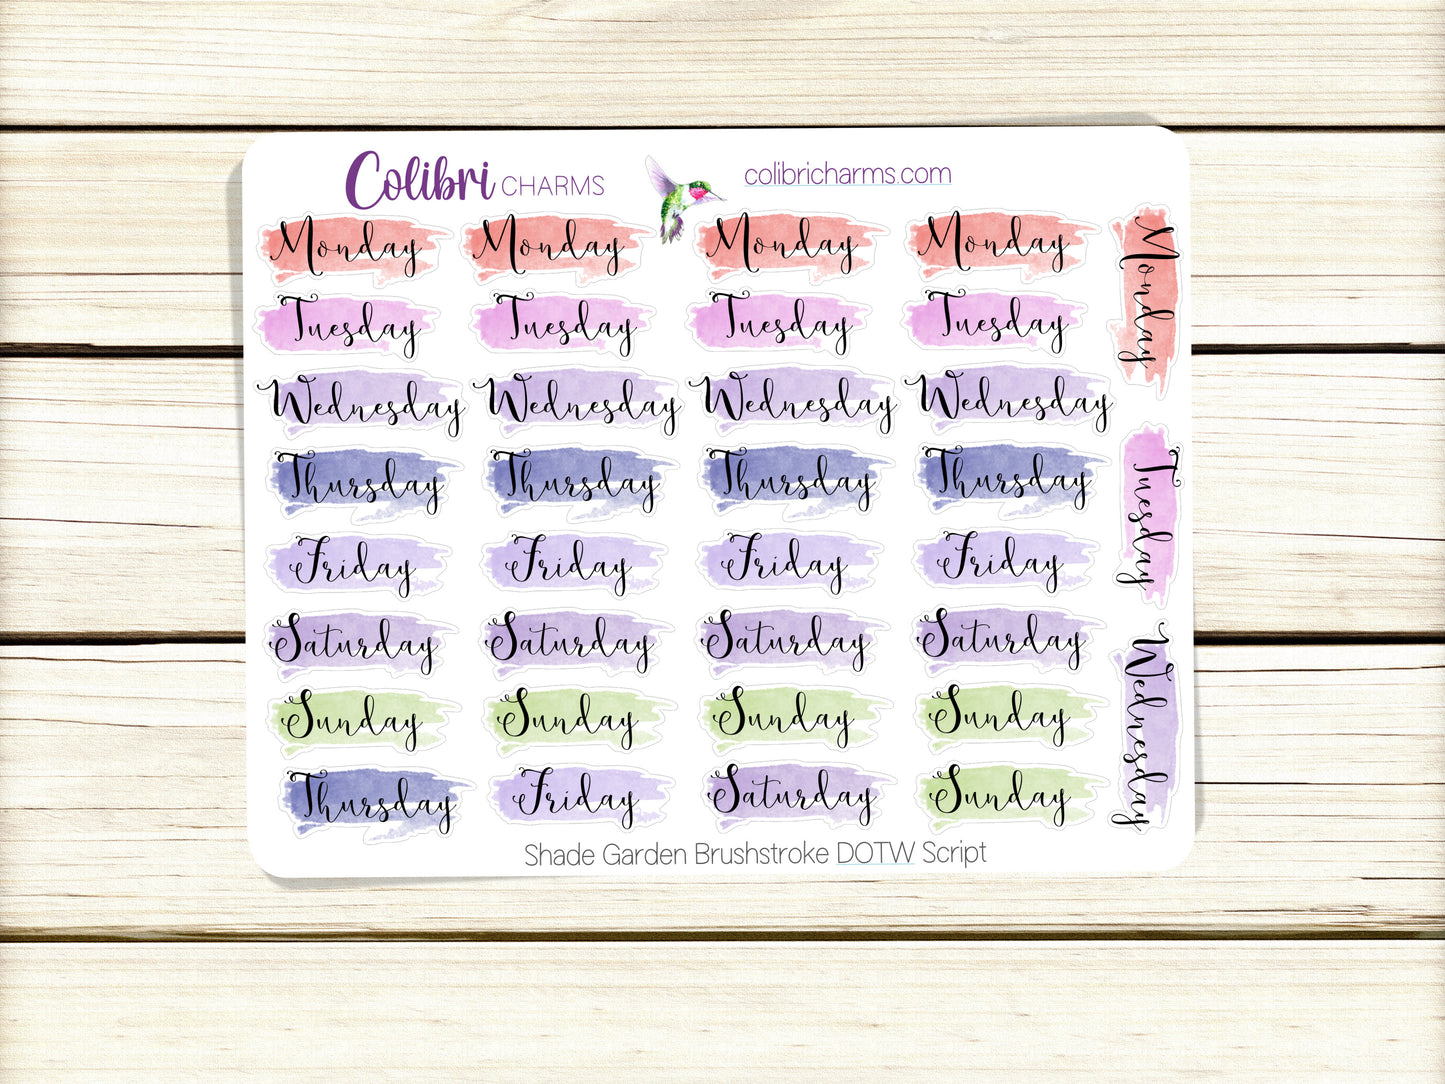 Colibri CHARMS
colibricharms.com
Monday Monday Monday Monday
Tuesday Tuesday Tuesday Tuesday
Wednesday Wednesday Wednesday Wednesday
Thursday Thursday Thursday Thursday
Friday Friday Friday Friday
Saturday Saturday Saturday Saturday
Sunday Sunday Sunday Sunday
Thursday Friday Saturday Sunday
Monday
Tuesday
Wednesday
Shade Garden Brushstroke DOTW Script